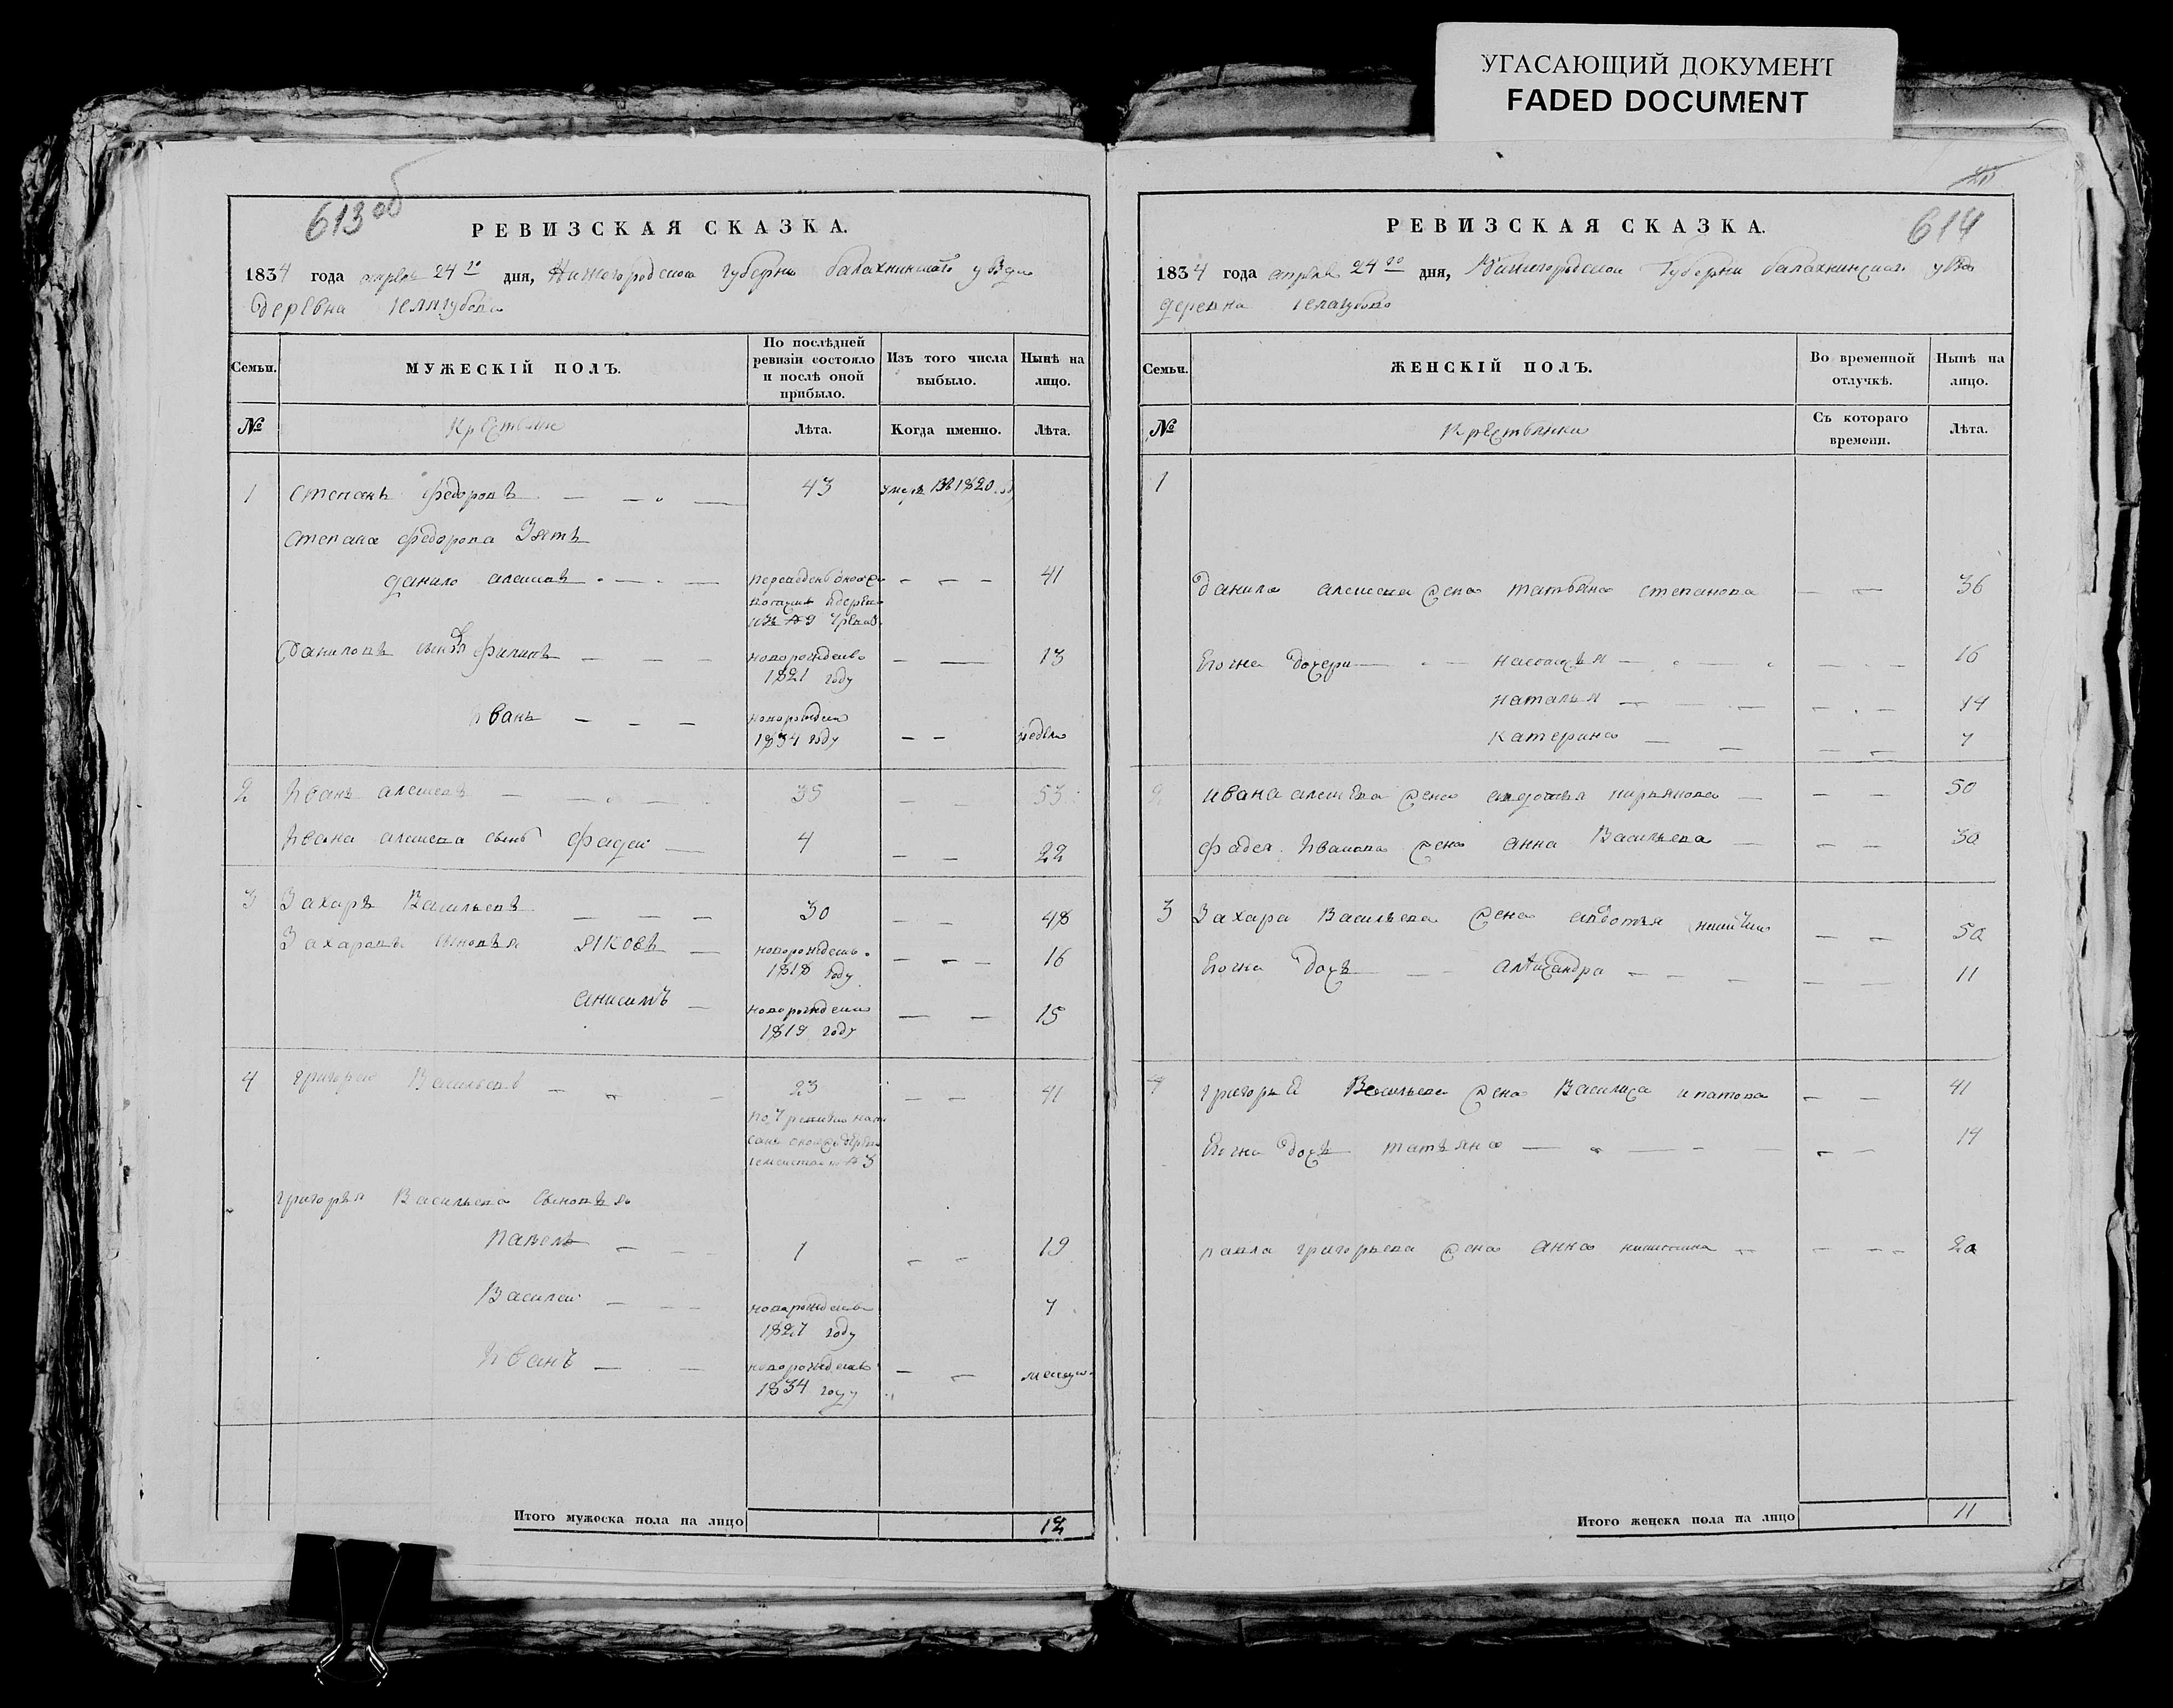 УГАСАЮЩИЙ ДОКУМЕНТ
FADED DOCUMENT
613 об
РЕВИЗСКАЯ СКАЗКА.
1834 года апреля 24 го дня, Нижегородской губерни балахнинского уезда
деревна
Семьи.
МУЖЕСКІЙ ПОЛЪ.
По послѣдней ревизіи состояло и послѣ оной прибыло.
Изъ того числа выбыло.
Нынѣ на лицо.
№
Крестьяне
Лѣта.
Когда именно.
Лѣта.
1 Степанъ Федоровъ 43 умеръ въ 1820
Степана Федорова Зять
данило алексеевъ 41
Даниловы сыновья филипъ новорожденъ 1821 году 13
Иванъ новорожденъ 1834 году неделя
2 Иванъ алексеевъ 35 53
Ивана алексеева сынъ Фадей 4 22
3 Захаръ Васильевъ 30 48
Захаровы сыновья Яковъ новорожденъ 1818 году 16
анисимъ новорожденъ 1819 году 15
4 григорей Васильевъ 23 41
григорья Васильева сыновья
павелъ 1 19
Василей новорожденъ 1827 году 7
Иванъ новорожденъ 1834 году
Итого мужеска пола на лицо 12
614
РЕВИЗСКАЯ СКАЗКА.
1834 года апреля 24 го дня, Нижегородской Губерни балахнинской уезда
деревна
Семьи.
ЖЕНСКІЙ ПОЛЪ.
Во временной отлучкѣ.
Нынѣ на лицо.
№
Крестьянки
Съ котораго времени.
Лѣта.
1
данила алексеева жена татьяна степанова 36
Евочна дочери настасья 16
наталья 14
катерина 7
2 ивана алексева жена авдотья 50
фадея Иванова жена анна Васильева 30
3 Захара Васильева жена авдотья 50
Евочна дочь александра 11
4 григорья Васильева жена Василиса ипатова 41
Евочна дочь татьяна 14
павла григорьева жена анна никитина 20
Итого женска пола на лицо 11